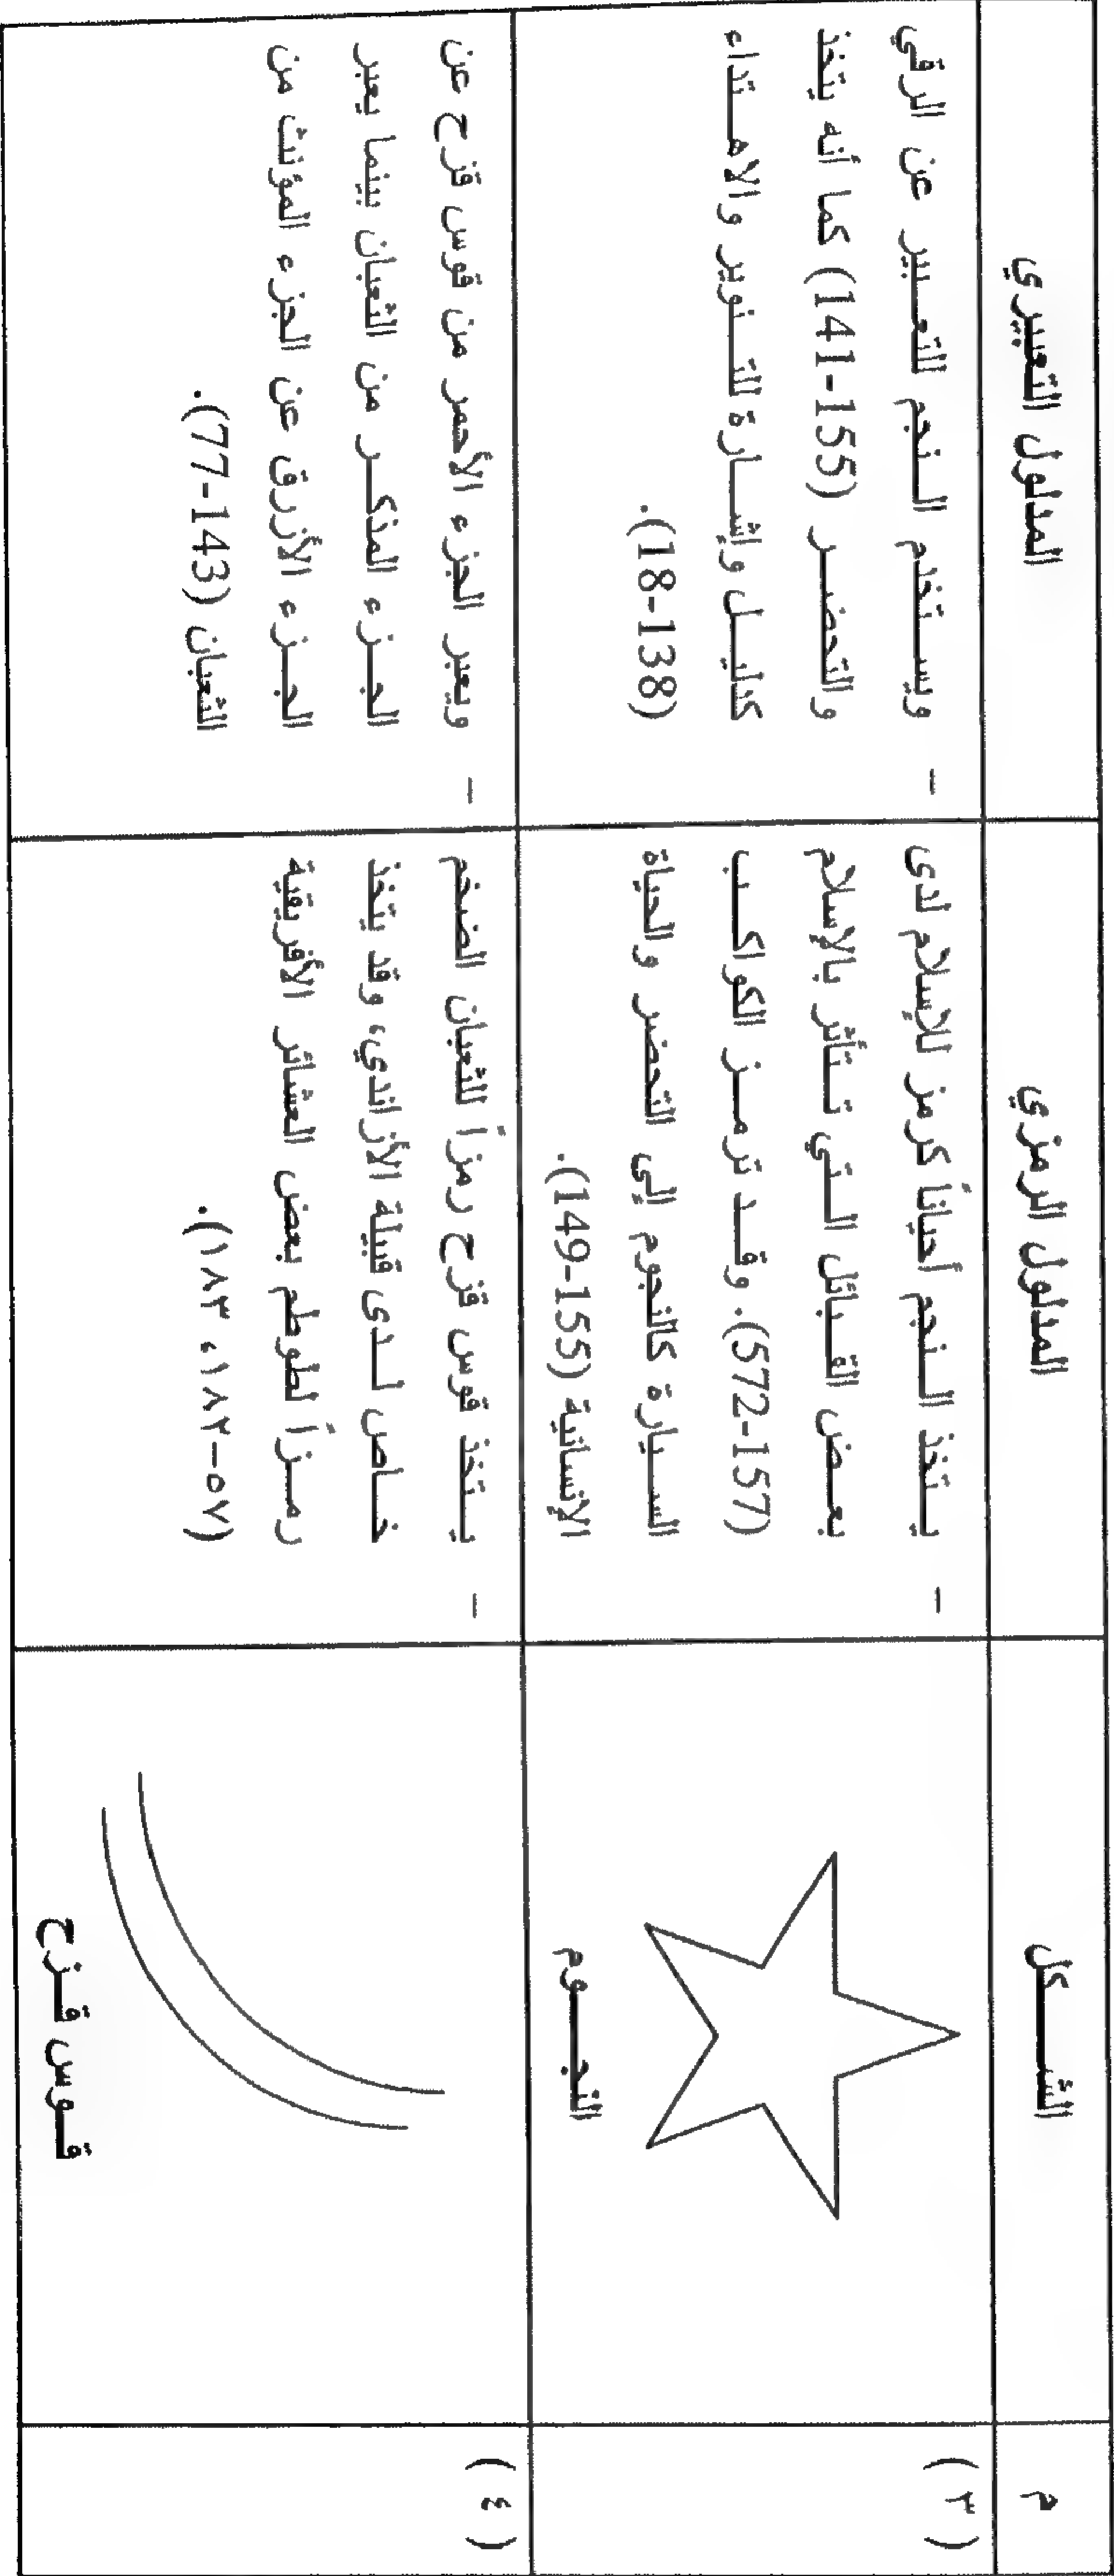 م
الشكل
المدلول الرمزي
المدلول التعبيري
(٣)
النجوم
- يتخذ النجم أحياناً كرمز للإسلام لدى
بعض القبائل التي تتأثر بالإسلام
(572-157). وقد ترمز الكواكب
السيارة كالنجوم إلى التحضر والحياة
الإنسانية (149-155).
- ويستخدم النجم للتعبير عن الرقي
والتحضر (141-155) كما أنه يتخذ
كدليل وإشارة للتنوير والاهتداء
(18-138).
(٤)
قوس قزح
- يتخذ قوس قزح رمزاً للثعبان الضخم
خاص لدى قبيلة الأزاندي، وقد يتخذ
رمزاً لطوطم بعض العشائر الأفريقية
(٥٧-١٨٢، ١٨٣).
- ويعبر الجزء الأحمر من قوس قزح عن
الجزء المذكر من الثعبان بينما يعبر
الجزء الأزرق عن الجزء المؤنث من
الثعبان (77-143).